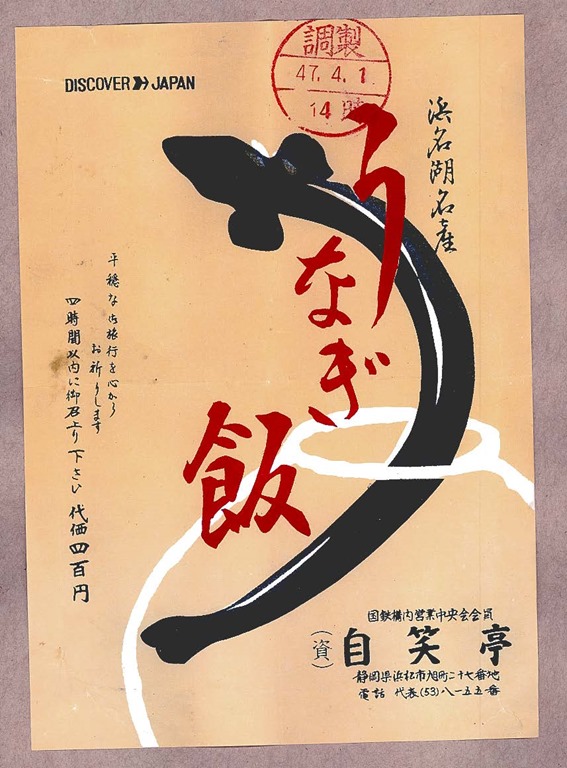 DISCOVER JAPAN
調製
47.4.1
14時
浜名湖名産
うなぎ飯
平穏な御旅行を心から
お祈りします
四時間以内に御召上り下さい 代価四百円
国鉄構内営業中央会会員
(資) 自笑亭
静岡県浜松市旭町二十七番地
電話 代表(53)八一五五番